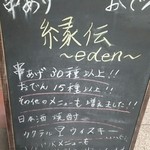 串あげ おでん
縁伝
～eden～
串あげ 30種以上!!
おでん 15種以上!!
その他のメニューも増えました!!
日本酒 焼酎
カクテル ウイスキー
メニューも